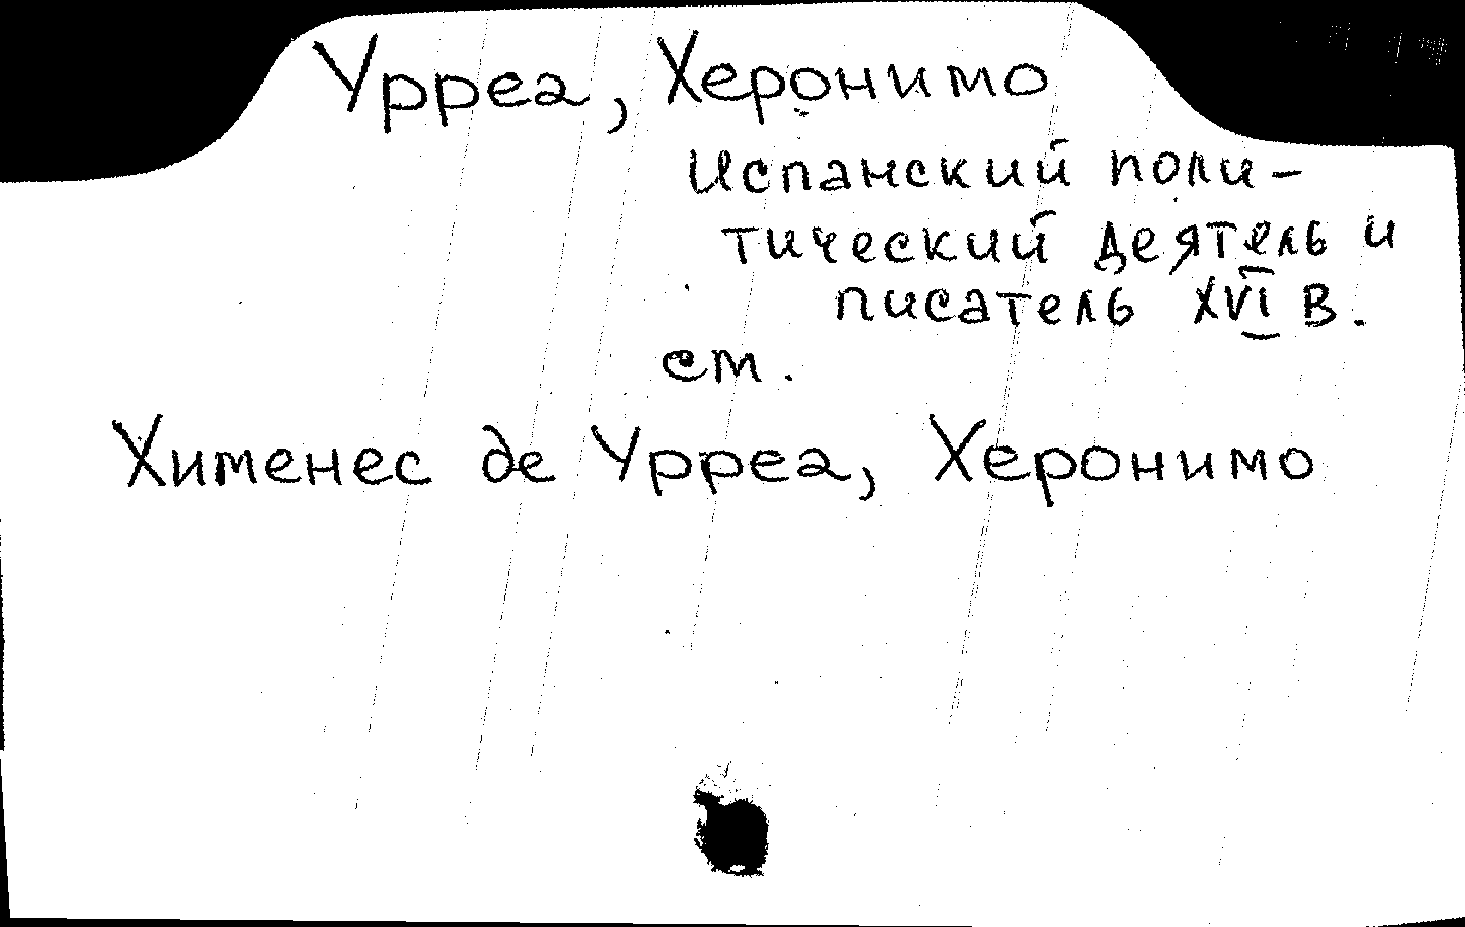 Урреа, Херонимо
Испанский поли-
тический деятель и
писатель XVI в.
см.
Хименес де Урреа, Херонимо